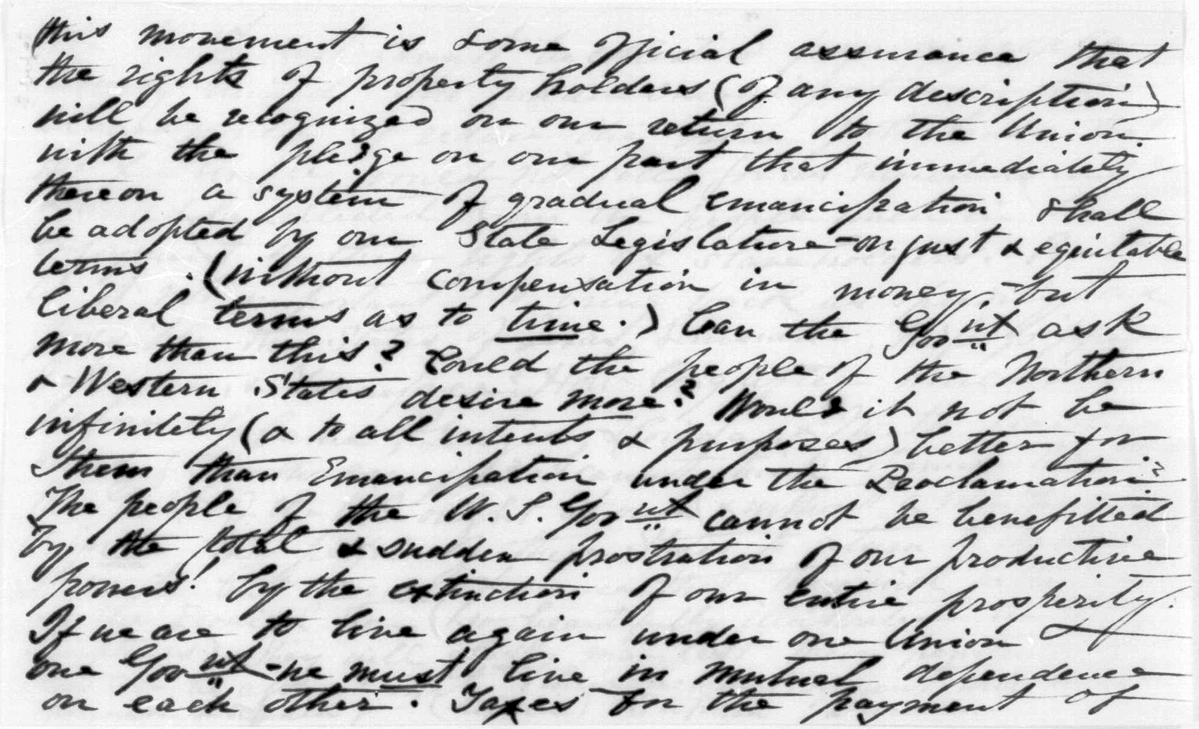 this movement is some official assurance that
the rights of property holders (of any description)
will be recognized on our return to the Union
with the pledge on our part that immediately
thereon a system of gradual emancipation shall
be adopted by our State Legislature - on just & equitable
terms. (without compensation in money, - but
liberal terms as to time.) Can the Govnt ask
more than this? Could the people of the Northern
& Western States desire more? Would it not be
infinitely (& to all intents & purposes) better for
them than Emancipation under the Proclamation?
The people of the U. S. Govnt cannot be benefitted
by the total & sudden prostration of our productive
powers! by the extinction of our entire prosperity.
If we are to live again under one Union &
one Govnt - we must live in mutual dependence
on each other. Taxes for the payment of